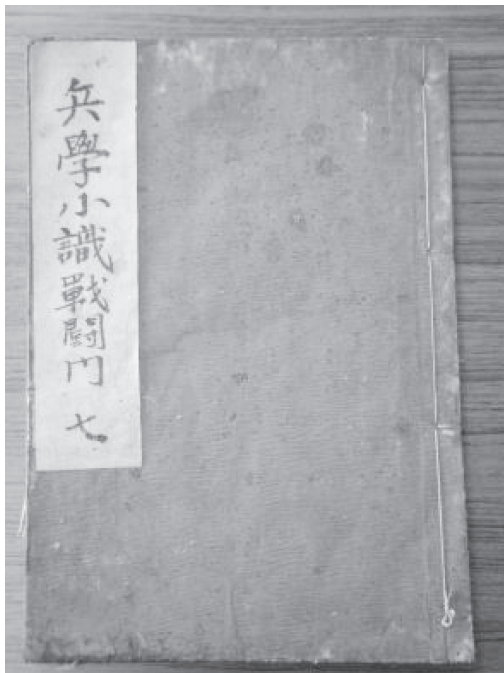 兵學小識戰鬪門 七